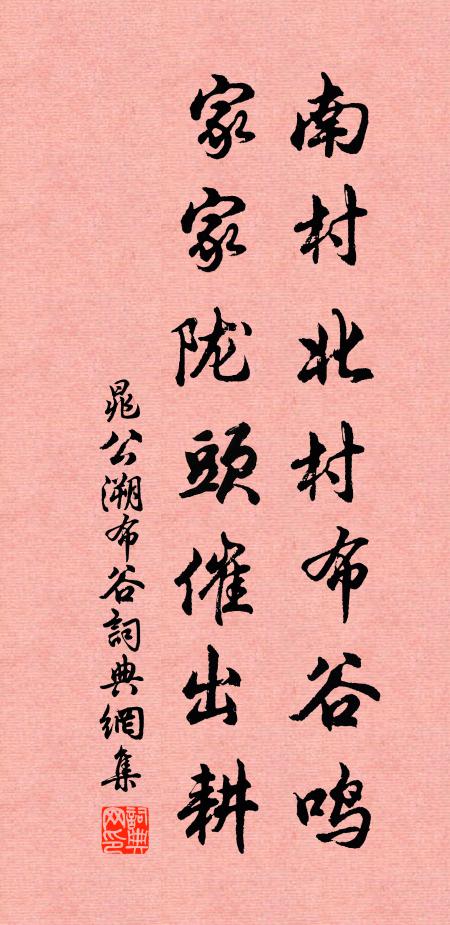 南村北村布谷鸣
家家陇頭催出耕
晁公溯布谷詞典網集
詞典网印